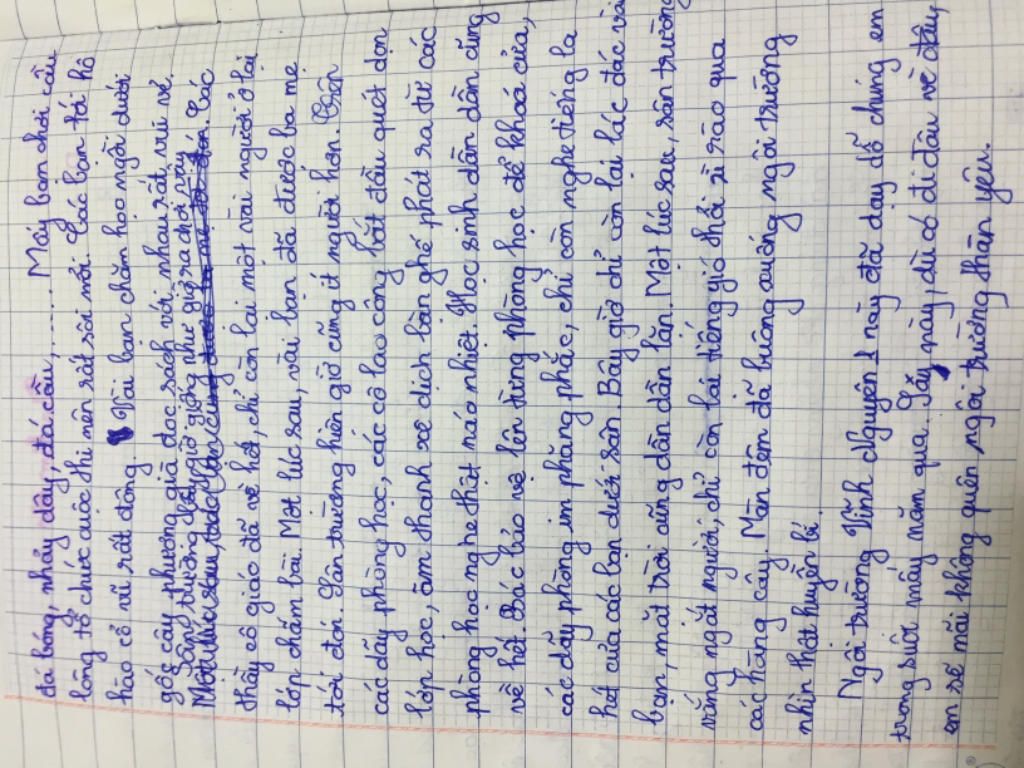 đá bóng, nhảy dây, đá cầu,....... Mấy bạn chơi cầu
lông tổ chức cuộc thi nên rất sôi nổi. Các bạn tới hô
hào cổ vũ rất đông. Vài bạn chăm học ngồi dưới
gốc cây phượng già đọc sách với nhau rất vui vẻ.
Sân trường giờ giống như giờ ra chơi vậy. Các
thầy cô giáo đã về hết, chỉ còn lại một vài người ở lại
lớp chấm bài. Một lúc sau, vài bạn đã được ba mẹ
tới đón. Sân trường hiện giờ cũng ít người hơn. Trên
các dãy phòng học, các cô lao công bắt đầu quét dọn
lớp học, âm thanh xê dịch bàn ghế phát ra từ các
phòng học nghe thật náo nhiệt. Học sinh dần dần cũng
về hết. Bác bảo vệ lên từng phòng học để khoá cửa,
các dãy phòng im phăng phắc, chỉ còn nghe tiếng la
hét của các bạn dưới sân. Bây giờ chỉ còn lại lác đác vài
bạn, mặt trời cũng dần dần lặn. Một lúc sau, sân trường
vắng ngắt người, chỉ còn lại tiếng gió thổi rì rào qua
các hàng cây. Màn đêm đã buông xuống ngôi trường
nhìn thật huyền bí.
Ngôi trường Vĩnh Nguyên 1 này đã dạy dỗ chúng em
trong suốt mấy năm qua. Sau này, dù có đi đâu về đâu,
em sẽ mãi không quên ngôi trường thân yêu.